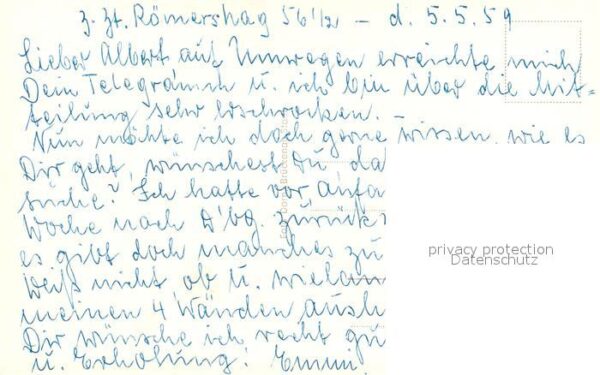 z. Zt. Römershag 56 1/2 – d. 5.5.59
Lieber Albert auf Umwegen erreichte mich
Dein Telegramm u. ich bin über die Mit=
teilung sehr erschrocken.
Nun möchte ich doch gerne wissen wie es
Dir geht, wünschest Du, da
suche? Ich hatte vor, Anfa
Woche nach D'bg. zurückz
es gibt doch manches zu
weiß nicht ob u. wielan
meinen 4 Wänden aush
Dir wünsche ich recht gu
u. Erholung! Emmi.
privacy protection
Datenschutz